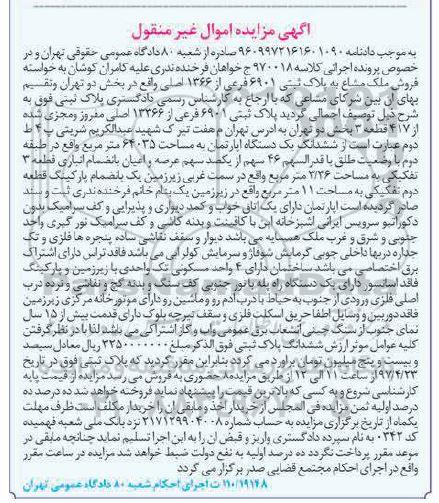 آگهی مزایده اموال غیر منقول
به موجب دادنامه ۹۶۰۹۹۷۲۱۶۱۶۰۱۰۹۰ صادره از شعبه ۸۰ دادگاه عمومی حقوقی تهران و در
خصوص پرونده اجرائی کلاسه ۹۷۰۰۱۸ ج خواهان فرخنده ندری علیه کامران کوشان به خواسته
فروش ملک مشاع به پلاک ثبتی ۶۹۰۱ فرعی از ۱۳۶۶ اصلی واقع در بخش دو تهران وتقسیم
بهای آن بین شرکای مشاعی که با ارجاع به کارشناس رسمی دادگستری پلاک ثبتی فوق به
شرح ذیل توصیف اجمالی گردید پلاک ثبتی ۶۹۰۱ فرعی از ۱۳۳۶۶ اصلی مفروز ومجزی شده
از ۴۱۷ قطعه ۳ بخش دو تهران به ادرس تهران هفت تیر ک شهید عبدالکریم شریتی پ ۴ ط
دوم عبارت است از ششدانگ یک دستگاه اپارتمان به مساحت ۶۴۰۳۵ متر مربع واقع در طبقه
دوم با وضعیت طلق با قدرالسهم ۴۶ سهم از یکصد سهم عرصه و اعیان بانضمام انباری قطعه ۳
تفکیکی به مساحت ۲/۲۶ متر مربع واقع در سمت غربی زیرزمین یک بانضمام پارکینگ قطعه
دوم تفکیکی به مساحت ۱۱ متر مربع واقع در زیرزمین یک بنام خانم فرخنده ندری ثبت و سند
صادر گردیده است اپارتمان دارای یک اتاق خواب و کمد دیواری و پذیرایی و کف سرامیک بدون
دکوراتیو سرویس ایرانی اشپزخانه اپن با کابینت و بدنه کاشی و کف سرامیک نور گیری واحد
جنوبی و شرق و غرب ملک همسایه می باشد دیوار و سقف نقاشی ساده پنجره ها فلزی و تک
جداره دربها داخلی چوبی گرمایش شوفاژ و سرمایش کولر آبی می باشد فاقد تراس دارای اشتراک
برق اختصاصی می باشد ساختمان دارای ۴ واحد مسکونی تک واحدی با زیرزمین و پارکینگ
فاقد آسانسور دارای یک دستگاه راه پله با نور جنوبی کف سنگ و بدنه گچ و نقاشی و نرده درب
اصلی فلزی ورودی از جنوب به حیاط با درب آدم رو و ماشین رو دارای موتورخانه مرکزی زیرزمین
فاقد دوربین و وسایل اطفا حریق اسکلت فلزی و سقف تیرچه بلوک دارای قدمت بیش از ۱۵ سال
نمای جنوب از سنگ چینی انشعاب برق عمومی واب و گاز اشتراکی می باشد لذا با در نظر گرفتن
کلیه عوامل موثر ارزش ششدانگ پلاک ثبتی فوق الذکر مبلغ ۳۲۵۰۰۰۰۰۰۰ ریال معادل سیصد
و بیست و پنج میلیون تومان براورد می گردد بنابراین مقرر گردید که پلاک ثبتی فوق در تاریخ
۹۷/۴/۲۳ از ساعت ۱۱ الی ۱۲ از طریق مزایده حضوری به فروش می رسد مزایده از قیمت پایه
کارشناسی شروع و به کسی که بالاترین قیمت را پیشنهاد نماید فروخته خواهد شد ده درصد ده
درصد اولیه ثمن مزایده فی المجلس از خریدار اخذ و مابقی را خریدار مکلف است ظرف مهلت
یکماه از تاریخ برگزاری مزایده به حساب شماره ۲۱۷۱۲۹۹۰۴۰۰۸ نزد بانک ملی شعبه فهمیده
کد ۰۳۴۲ به نام سپرده دادگستری واریز و قبض ان را به این اجرا تسلیم نماید چنانچه مابقی در
موعد مقرر پرداخت نگردد ده درصد اولیه به نفع دولت ضبط خواهد شد مزایده در ساعت مقرر
واقع در اجرای احکام مجتمع قضایی صدر برگزار می گردد
۱۱۰/۱۹۱۴۸ ت اجرای احکام شعبه ۸۰ دادگاه عمومی تهران